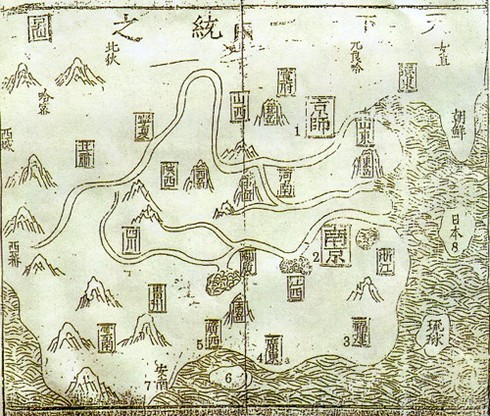 統之圖
女直
兀良哈
北狄
哈密
朝鮮
京師
1
山西
山東
陝西
河南
西域
西番
日本 8
南京
2
浙江
江西
四川
貴州
雲南
廣西
5
廣東
4
福建
3
琉球
6
安南
7